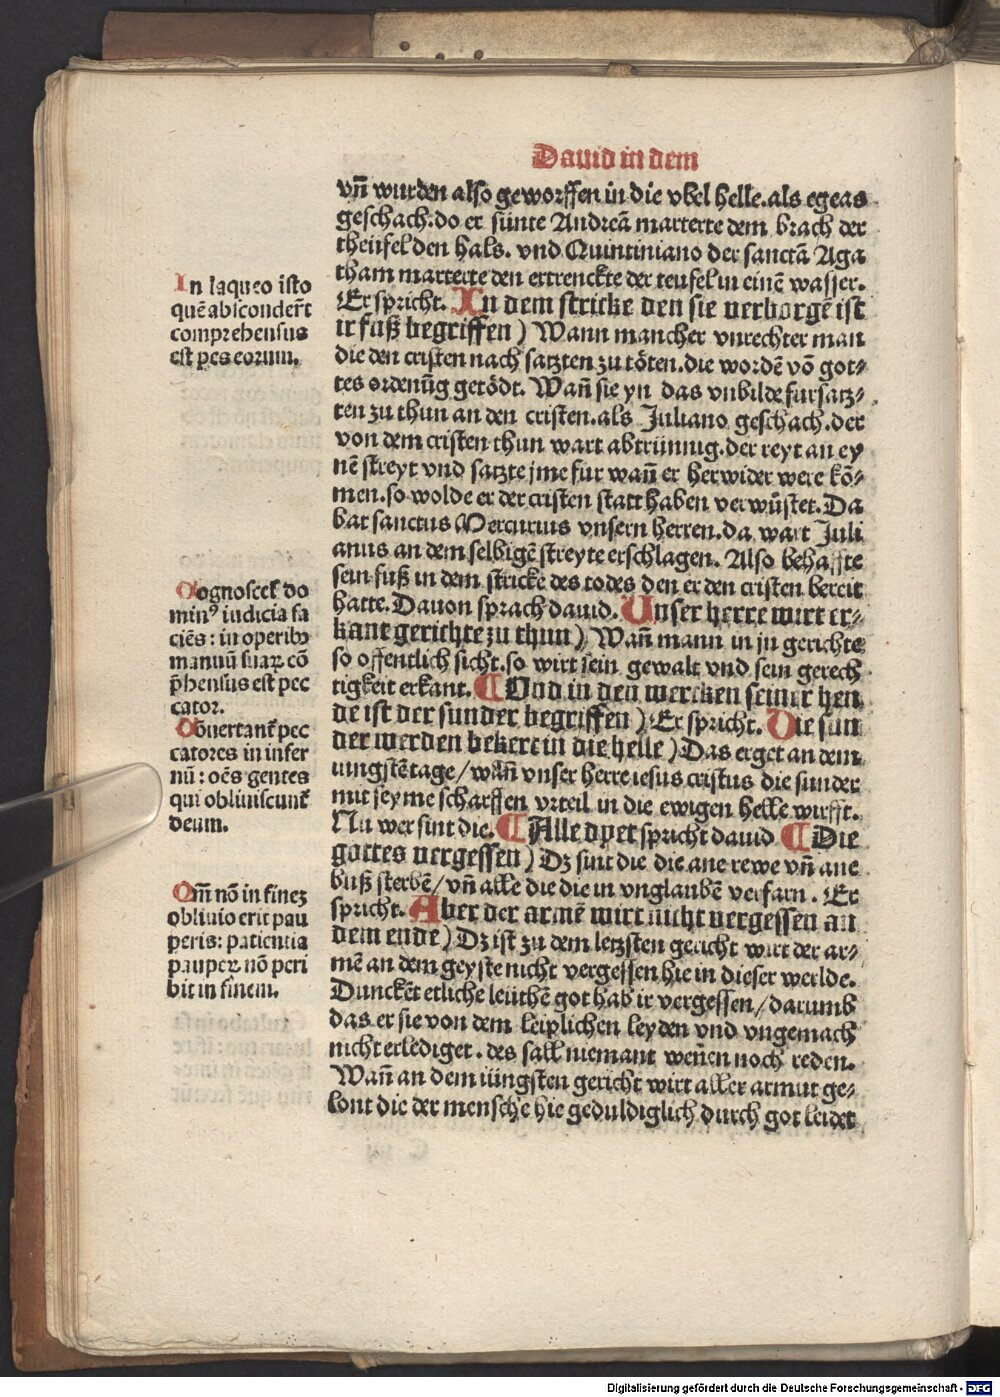 Dauid in dem
vñ wurden also geworffen in die vbel helle. als egeas
geschach. do er sünte Andreā marterte dem brach der
theüfel den hals. vnd Quintiniano der sanctā Aga
tham marterte den ertrenckte der teufel in einē wasser.
Er spricht. In dem stricke den sie verborgē ist
ir fuß begriffen) Wann mancher vnrechter man
die den cristen nach satzten zu töten. die wordē vō got⸗
tes ordenūg getödt. Wañ sie yn das vnbilde fursatz⸗
ten zu thun an den cristen. als Juliano geschach. der
von dem cristen thun wart abtrünnig. der reyt an ey
nē streyt vnd satzte jme fur wañ er herwider were kō⸗
men. so wolde er der cristen statt haben verwüstet. Da
bat sanctus Mercurius vnsern herren. da wart Juli
anus an dem selbigē streyte erschlagen. Also behaffte
sein fuß in dem stricke des todes den er den cristen bereit
hatte. Dauon sprach dauid. Unser herre wirt er⸗
kant gerichte zu thun) Wañ mann in ju gerichte
so offentlich sicht. so wirt sein gewalt vnd sein gerech
tigkeit erkant. ¶ Vnd in den wercken seiner hen
de ist der sunder begriffen) Er spricht. Die sun
der werden bekert in die helle) Das erget an dem
iungstē tage/ wañ vnser herre iesus cristus die sunder
mit seyme scharffen vrteil in die ewigen helle wirfft.
Nu wer sint die. ¶ Alle dyet spricht dauid ¶ Die
gottes vergessen) Dz sint die die ane rewe vñ ane
buß sterbē/ vñ alle die die in vnglaubē verfarn. Er
spricht. Aber der armē wirt nicht vergessen an
dem ende) Dz ist zu dem letzsten gericht wirt der ar⸗
mē an dem geyste nicht vergessen hie in dieser werlde.
Dunckēt etliche leüthē got hab ir vergessen/ darumb
das er sie von dem leiplichen leyden vnd vngemach
nicht erlediget. des sall niemant wenen noch reden.
Wañ an dem iüngsten gericht wirt aller armut ge⸗
lont die der mensche hie geduldiglich durch got leidet
In laqueo isto
quē absconder̄t
comprehensus
est pes eorum.
Cognoscet̄ do
minꝰ iudicia fa
ciēs: in operibꝰ
manuū suaꝝ cō
p̄hensus est pec
cator.
Cōuertant̄ pec
catores in infer
nū: oēs gentes
qui obliuiscunt̄
deum.
Qm̄ nō in finez
obliuio erit pau
peris: patientia
pauperꝝ nō peri
bit in finem.
Digitalisierung gefördert durch die Deutsche Forschungsgemeinschaft - DFG